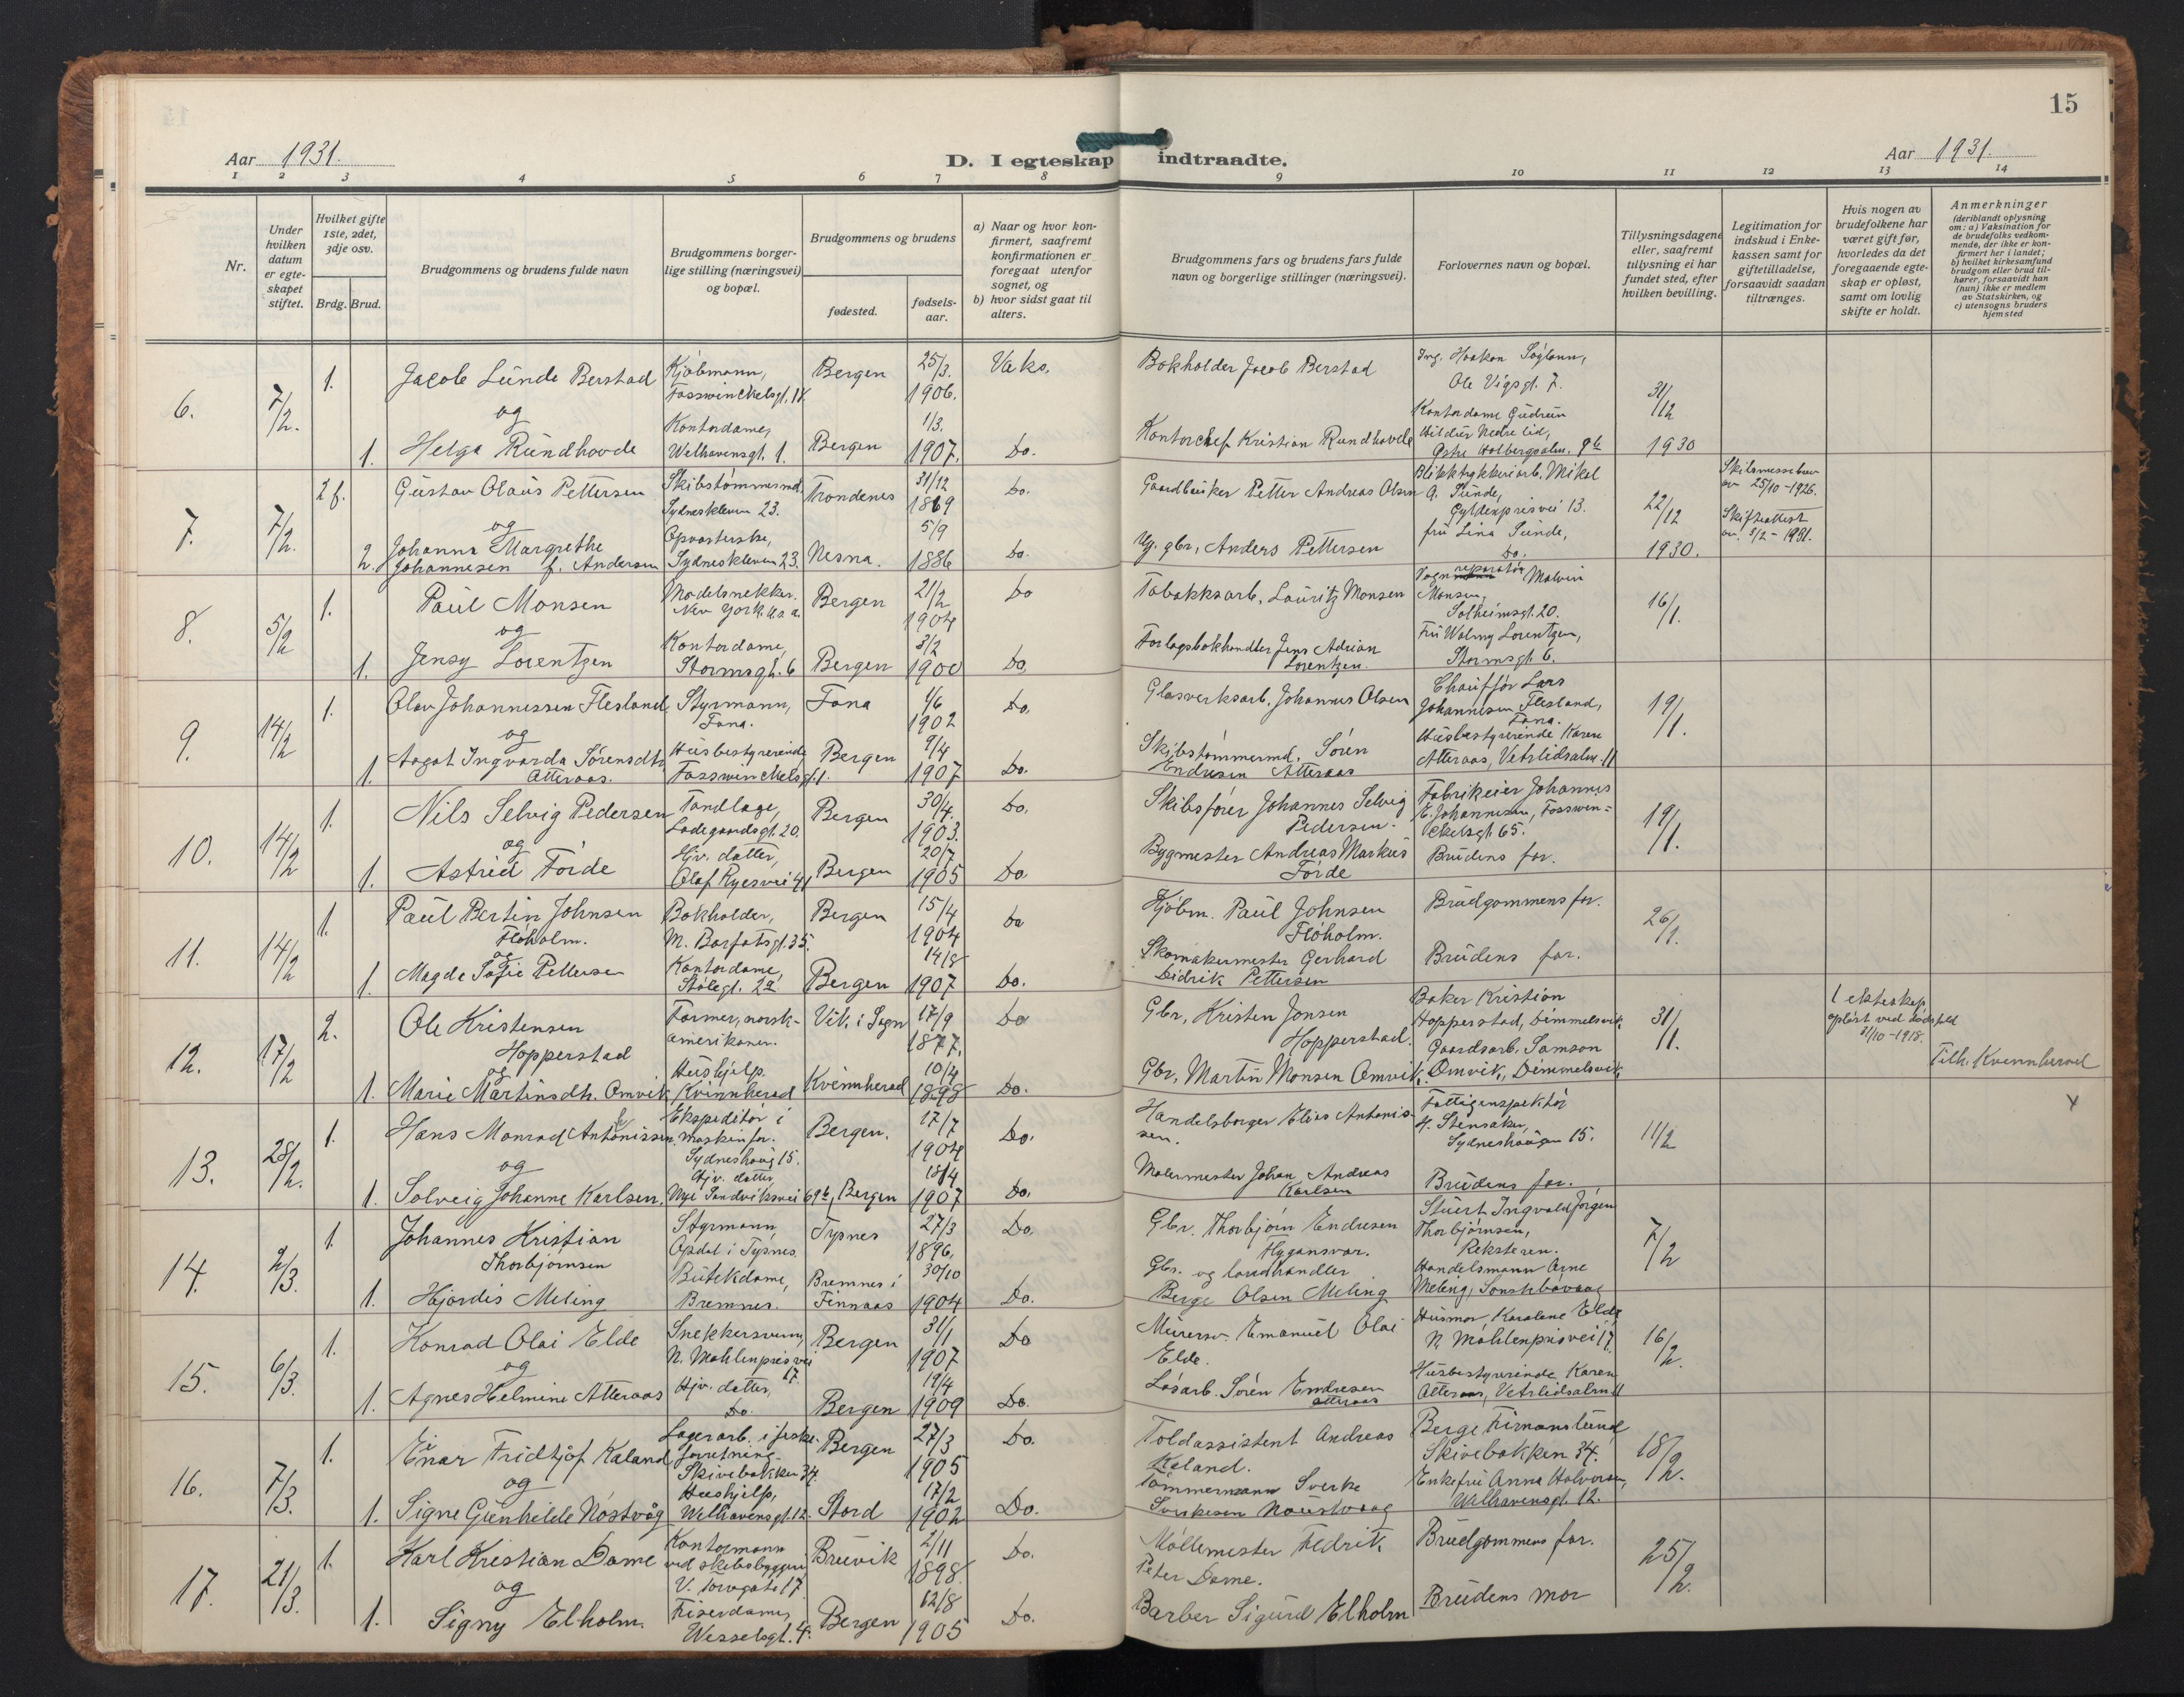 15
Aar 1931.
D. I egteskap indtraadte.
Aar 1931.
1 2 3 4 5 6 7 8 9 10 11 12 13 14
Nr.
Under hvilken datum er egteskapet stiftet.
Hvilket gifte 1ste, 2det, 3dje osv.
Brdg. Brud.
Brudgommens og brudens fulde navn
Brudgommens borgerlige stilling (næringsvei) og bopæl.
Brudgommens og brudens
fødested.
fødselsaar.
a) Naar og hvor konfirmert, saafremt konfirmationen er foregaat utenfor sognet, og
b) hvor sidst gaat til alters.
Brudgommens fars og brudens fars fulde navn og borgerlige stillinger (næringsvei).
Forlovernes navn og bopæl.
Tillysningsdagene eller, saafremt tillysning ei har fundet sted, efter hvilken bevilling.
Legitimation for indskud i Enkekassen samt for giftetilladelse, forsaavidt saadan tiltrænges.
Hvis nogen av brudefolkene har været gift før, hvorledes da det foregaaende egteskap er opløst, samt om lovlig skifte er holdt.
Anmerkninger
(deriblandt oplysning om: a) Vaksination for de brudefolks vedkommende, der ikke er konfirmert her i landet; b) hvilket kirkesamfund brudgom eller brud tilhører, forsaavidt han (hun) ikke er medlem av Statskirken, og c) utensogns bruders hjemsted
6. 7/2. 1. Jacob Lunde Berstad Kjøbmann, Fosswinckelsgt. 18. Bergen 25/3. 1906. Vaks. Bokholder Jacob Berstad Ing. Haakon Søglann, Ole Vigsgt. 7. 31/12 1930
og
1. Helga Rundhovde Kontordame, Welhavensgt. 1. Bergen 1/3. 1907. Do. Kontorchef Kristian Rundhovde Kontordame Gudrun Hildur Nedre Lid, Østre Holbergsalm. 9b
7. 7/2. 2 f. Gustav Olaus Pettersen Skibstømmermd. Sydneskleven 23. Trondenes 31/12 1869 Do. Gaardbruker Petter Andreas Olsen Blikktrykkeriarb. Mikal A. Sunde, Gyldenprisvei 13. 22/12 1930. Skilsmissebrev av 25/10-1926. Skifteattest av 5/2-1931.
og
2. Johanna Margrethe Johannesen f. Andersen Opvarterske, Sydneskleven 23. Nesna. 5/9 1886 Do. Ug. gbr. Anders Pettersen fru Lina Sunde, Do.
8. 5/2 1. Paul Monsen Modelsnekker. New York U.S.A. Bergen 21/2 1904 Do Tobakksarb. Lauritz Monsen Vognreparatør Malvin Monsen, Solheimsgt. 20. 16/1.
og
1. Jensy Lorentzen Kontordame, Stormsgt. 6 Bergen 3/2 1900 Do. Forlagsbokhandler Jens Adrian Lorentzen. Fru Walmy Lorentzen, Stormsgt. 6.
9. 14/2 1. Olav Johannessen Flesland, Styrmann, Fana. Fana 1/6 1902 Do. Glasverksarb. Johannes Olsen Chauffør Lars Johannesen Flesland, Fana. 19/1.
og
1. Aagot Ingvarda Sørensdtr. Atteraas. Husbestyrerinde Fosswinckelsgt. 1. Bergen 9/4 1907 Do. Skibstømmermd. Søren Endresen Atteraas Husbestyrerinde Karen Atteraas, Vetrlidsalm. 11
10. 14/2 1. Nils Selvig Pedersen Tandlæge, Ladegaardsgt. 20. Bergen 30/4. 1903. Do. Skibsfører Johannes Selvig Pedersen. Fabrikeier Johannes E. Johannesen, Fosswinckelsgt. 65. 19/1.
og
1. Astrid Førde Hjv. datter, Olaf Ryesvei 41 Bergen 20/7 1905 Do Bygmester Andreas Markus Førde Brudens far.
11. 14/2 1. Paul Bertin Johnsen Fløholm. Bokholder, M. Barfotsgt. 35. Bergen 15/4 1904 Do Kjøbm. Paul Johnsen Fløholm. Brudgommens far. 26/1.
og
1. Magda Sofie Pettersen Kontordame, Stølegt. 2a Bergen 14/8 1907 Do. Skomakermester Gerhard Didrik Pettersen Brudens far.
12. 17/2 2. Ole Kristensen Hopperstad Farmer, norsk-amerikaner. Vik i Sogn 17/9 1877. Do Gbr. Kristen Jonsen Hopperstad. Baker Kristian Hopperstad, Dimmelsvik, 31/1. 1 ekteskap opløst ved dødsfald 31/10-1918.
og
1. Marie Martinsdtr. Omvik Hushjelp. Kvinnherad Kvinnherad 10/4 1898 Do. Gbr. Martin Monsen Omvik. Gaardsarb. Samson Omvik, Dimmelsvik Tilh. Kvinnherad
13. 28/2. 1. Hans Monrad Antonissen Ekspeditør i maskinfor. Sydneshaug 15. Bergen. 17/7 1904 Do. Handelsborger Elias Antonissen. Fattiginspektør H. Stensaker, Sydneshaugen 15. 11/2
og
1. Solveig Johanne Karlsen. Hjv. datter, Nye Sandviksvei 69b, Bergen 18/4 1907 Do. Malermester Johan Andreas Karlsen Brudens far.
14. 2/3. 1. Johannes Kristian Thorbjørnsen Styrmann Opdal i Tysnes. Tysnes 27/3 1896. Do. Gbr. Thorbjørn Endresen Flygansvær. Stuert Ingvald Jørgen Thorbjørnsen, Reksteren. 7/2
1. Hjørdis Meling Butikdame, Bremnes. Bremnes i Finnaas 30/10 1904 Do. Gbr. og landhandler Berge Olsen Meling Handelsmann Arne Meling,
15. 6/3. 1. Konrad Olai Elde Snekkersvenn, N. Møhlenprisvei 17. Bergen 31/1 1907 Do Murersv. Emanuel Olai Elde. Husmor Karolene Elde N. Møhlenprisvei 17. 16/2.
og
1. Agnes Helmine Atteraas Hjv. datter, Do. Bergen 19/4 1909 Do. Løsarb. Søren Endresen Atteraas Husbestyrerinde Karen Atteraas, Vetrlidsalm. 11
16. 7/3. 1. Einar Fridtjof Kaland Lagerarb. i fiskeforretning. Skivebakken 34. Bergen 27/3 1905 Do. Toldassistent Andreas Kaland. Berge Skivebakken 34. 18/2.
og
1. Signe Gunhilde Nøstvåg Hushjelp, Welhavensgt. 12. Stord 17/2 1902 Do. Tømmermann Sverke Sverkesen Naustvaag Enkefru Anna Halvorsen, Welhavensgt. 12.
17. 21/3. 1. Karl Kristian Dame Kontormann ved skibsbyggeri V. Torvgate 17. Bruvik 2/11 1898. Do. Møllemester Fedrik Peter Dame. Brudgommens far. 25/2.
og
1. Signy Elholm. Friserdame, Wesselsgt. 4. Bergen 12/8 1905 Do. Barber Sigurd Elholm Brudens mor